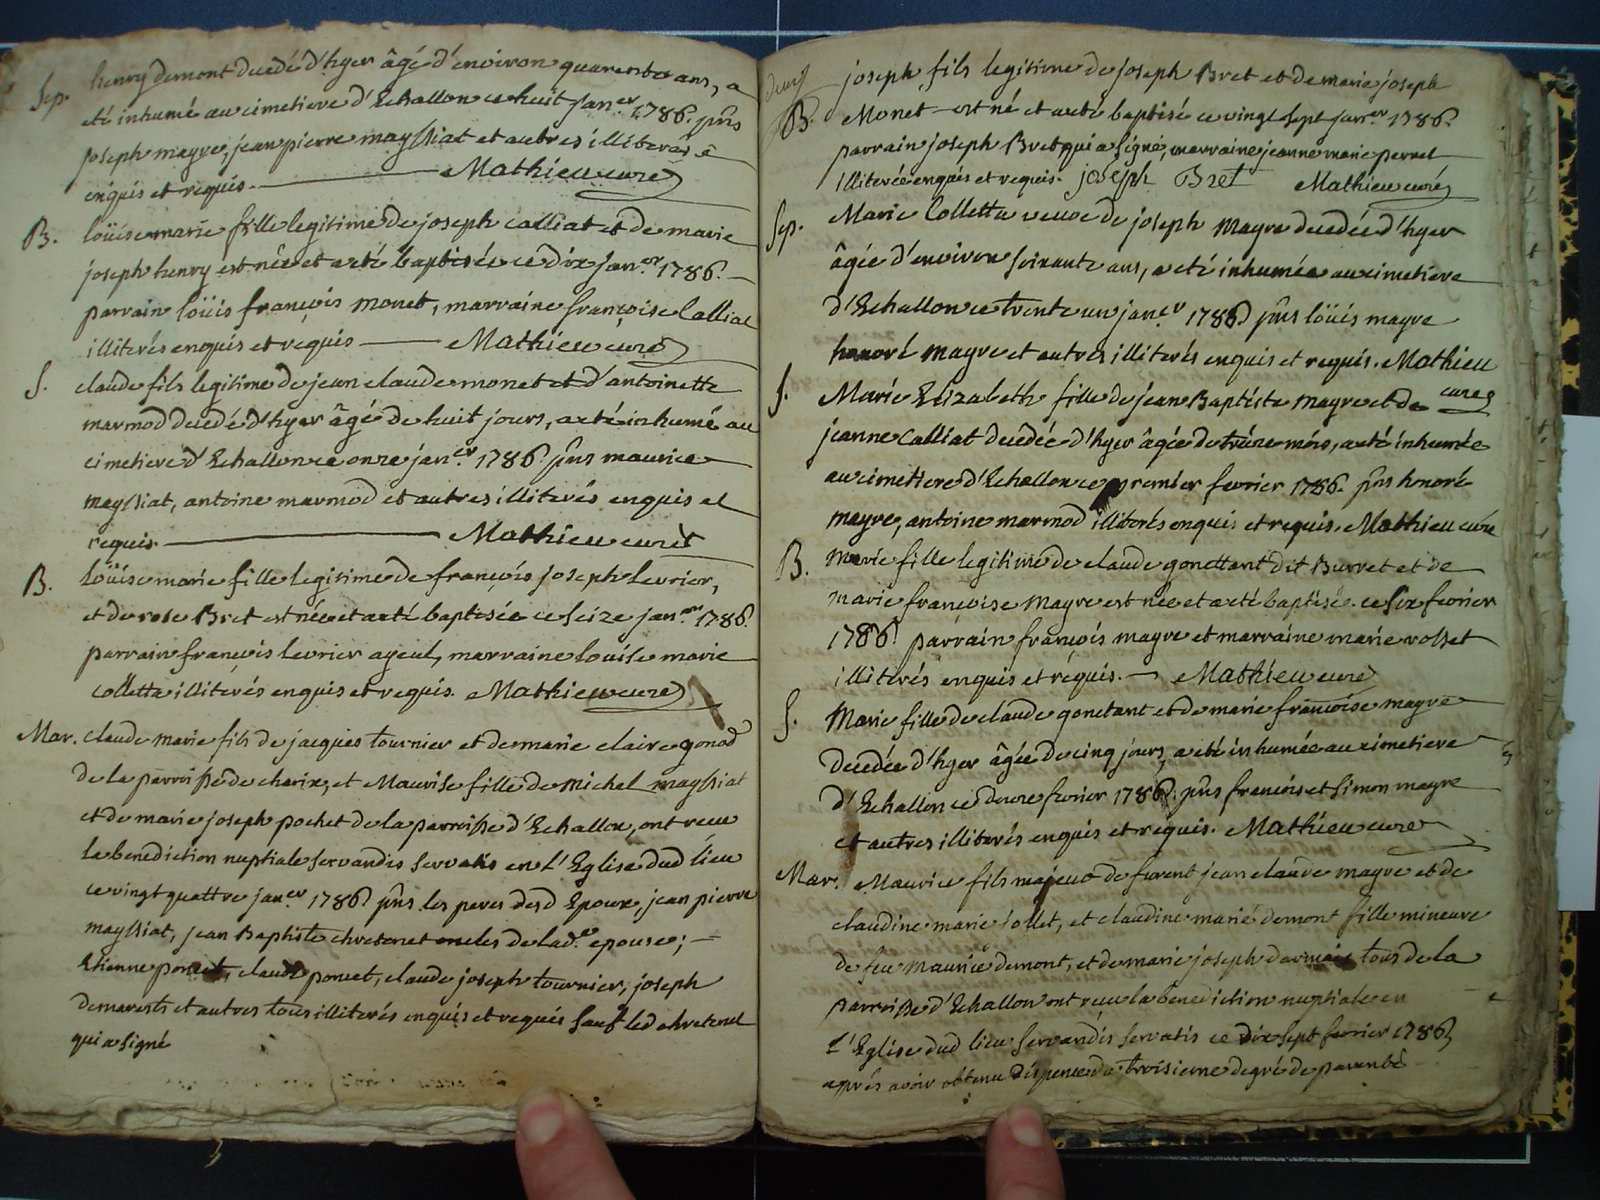 Sep. henry demont decedé d'hyer âgé d'environ quarente ans, a
eté inhumé au cimetiere d'Echallon ce huit jan.er 1786. pñs
joseph magre, jean pierre mayssiat et autres illiterés
enquis et requis. Mathieu curé
B. loüise marie fille legitime de joseph calliat et de marie
joseph henry est née et a eté baptisée ce dix jan.er 1786.
parrain loüis françois monet, marraine françoise Calliat
illiterés enquis et requis Mathieu curé
S. claude fils legitime de jean claude monet et d'antoinette
marmod decedé d'hyer âgé de huit jours, a eté inhumé au
cimetiere d'Echallon ce onze jan.er 1786. pñs maurice
mayssiat, antoine marmod et autres illiterés enquis et
requis. Mathieu curé
B. loüise marie fille legitime de françois joseph levrier,
et de rose Bret est née et a eté baptisée ce seize jan.er 1786.
parrain françois levrier ayeul, marraine louise marie
colletta illiterés enquis et requis. Mathieu curé
Mar. claude marie fils de jacques tournier et de marie claire gonod
de la parroisse de charix, et Maurise fille de Michel mayssiat
et de marie joseph pochet de la parroisse d'Echallon, ont recu
la benediction nuptiale servandis servatis en l'Eglise dud lieu
ce vingt quattre jan.er 1786. pñs les peres desd Epoux, jean pierre
mayssiat, jean Baptiste chretenet oncles de lad.e epouse;
Etienne poncet, claude poncet, claude joseph tournier, joseph
demarests et autres tous illiterés enquis et requis sauf led chretenet
qui a signé
deux
joseph fils legitime de joseph Bret et de marie joseph
B. Monet est né et a eté baptisé ce vingt sept jan.er 1786.
parrain joseph Bret qui a signé, marraine jeanne marie perret
illiterée enquis et requis. joseph Bret Mathieu curé
Sep. Marie Colletta veuve de joseph Magre decedée d'hyer
âgée d'environ soixante ans, a eté inhumée au cimetiere
d'Echallon ce trente un jan.er 1786 pñs loüis magre
honoré magre et autres illiterés enquis et requis. Mathieu
curé
S. Marie Elizabeth fille de jean Baptiste Magre et de
jeanne Calliat decedée d'hyer âgée de treize mois, a eté inhumée
au cimetiere d'Echallon ce premier fevrier 1786. pñs honoré
magre, antoine marmod illiterés enquis et requis. Mathieu curé
B. Marie fille legitime de claude gonettant dit Burret et de
marie françoise Magre est née et a eté baptisée ce six fevrier
1786. parrain françois magre et marraine marie rosset
illiterés enquis et requis. Mathieu curé
S. Marie fille de claude gonetant et de marie françoise magre
decedée d'hyer âgée de cinq jours, a eté inhumée au cimetiere
d'Echallon ce douze fevrier 1786. pñs françois et simon magre
et autres illiterés enquis et requis. Mathieu curé
Mar. Maurice fils majeur de furent jean claude magre et de
claudine marie jollet, et claudine marie demont fille mineure
de feu Maurice demont, et de marie joseph tous de la
parroisse d'Echallon ont recu la benediction nuptiale en
l'Eglise dud lieu servandis servatis ce dix sept fevrier 1786
aprés avoir obtenu dispence du troisieme degré de parenté